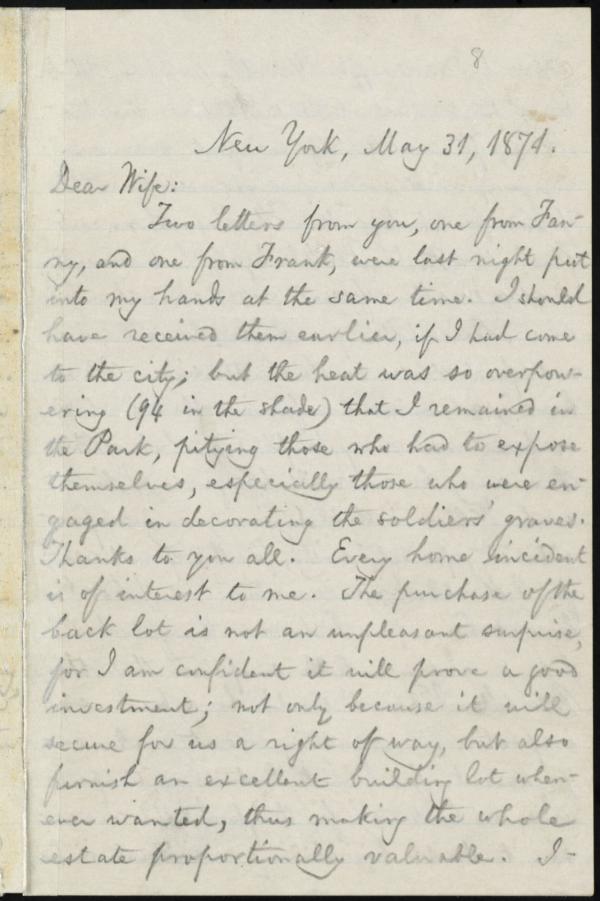 8
New York, May 31, 1871.
Dear Wife:
Two letters from you, one from Fan-
ny, and one from Frank, were last night put
into my hands at the same time. I should
have received them earlier, if I had come
to the city; but the heat was so overpow-
ering (94 in the shade) that I remained in
the Park, pitying those who had to expose
themselves, especially those who were en-
gaged in decorating the soldiers' graves.
Thanks to you all. Every home incident
is of interest to me. The purchase of the
back lot is not an unpleasant surprise,
for I am confident it will prove a good
investment; not only because it will
secure for us a right of way, but also
furnish an excellent building lot when-
ever wanted, thus making the whole
estate proportionally valuable. I-